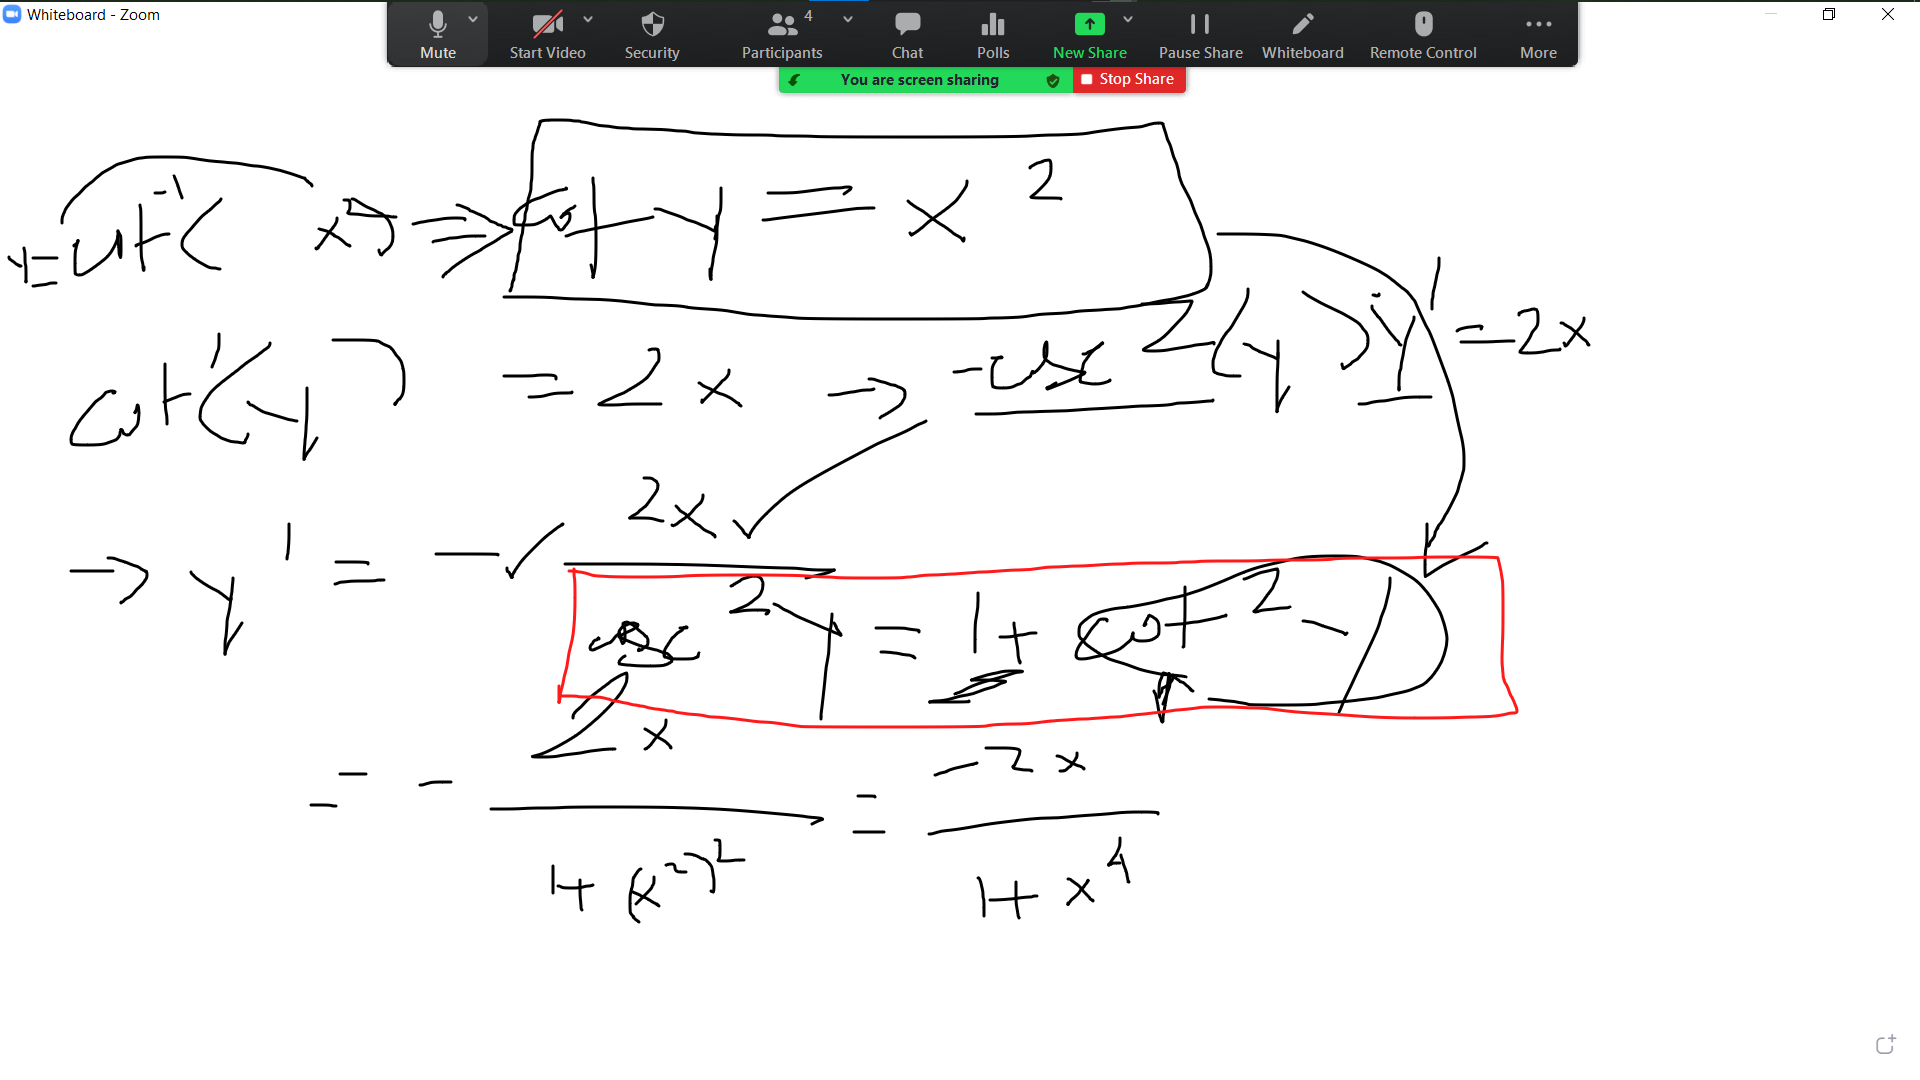 Whiteboard - Zoom
Mute Start Video Security Participants 4 Chat Polls New Share Pause Share Whiteboard Remote Control More
You are screen sharing Stop Share
y = cot⁻¹(x²) ⇒ cot y = x²
cot'(y) = 2x → -csc²(y) y' = 2x
→ y' = - 2x / csc²y = 1 + cot²y
= - 2x / 1+(x²)² = -2x / 1+x⁴